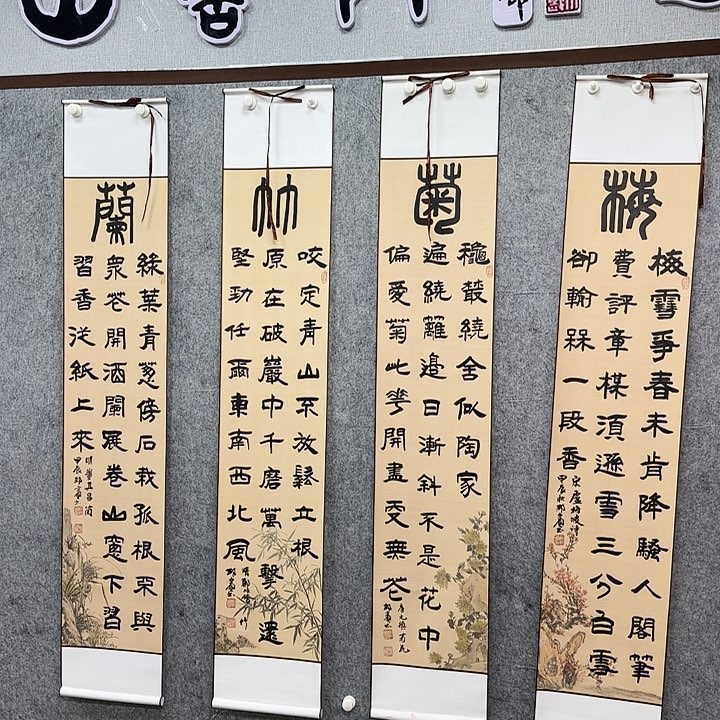 梅
梅雪爭春未肯降騷人閣筆
費評章楳須遜雪三分白雪
卻輸槑一段香
宋盧梅坡詩
菊
穐叢繞舍似陶家
遍繞籬邊日漸斜不是花中
偏愛菊此花開盡更無花
唐元稹菊花
竹
咬定青山不放鬆立根
原在破巖中千磨萬擊還
堅勁任爾東南西北風
蘭
綠葉青蔥傍石栽孤根不與
衆花開酒闌展卷山窗下習
習香從紙上來